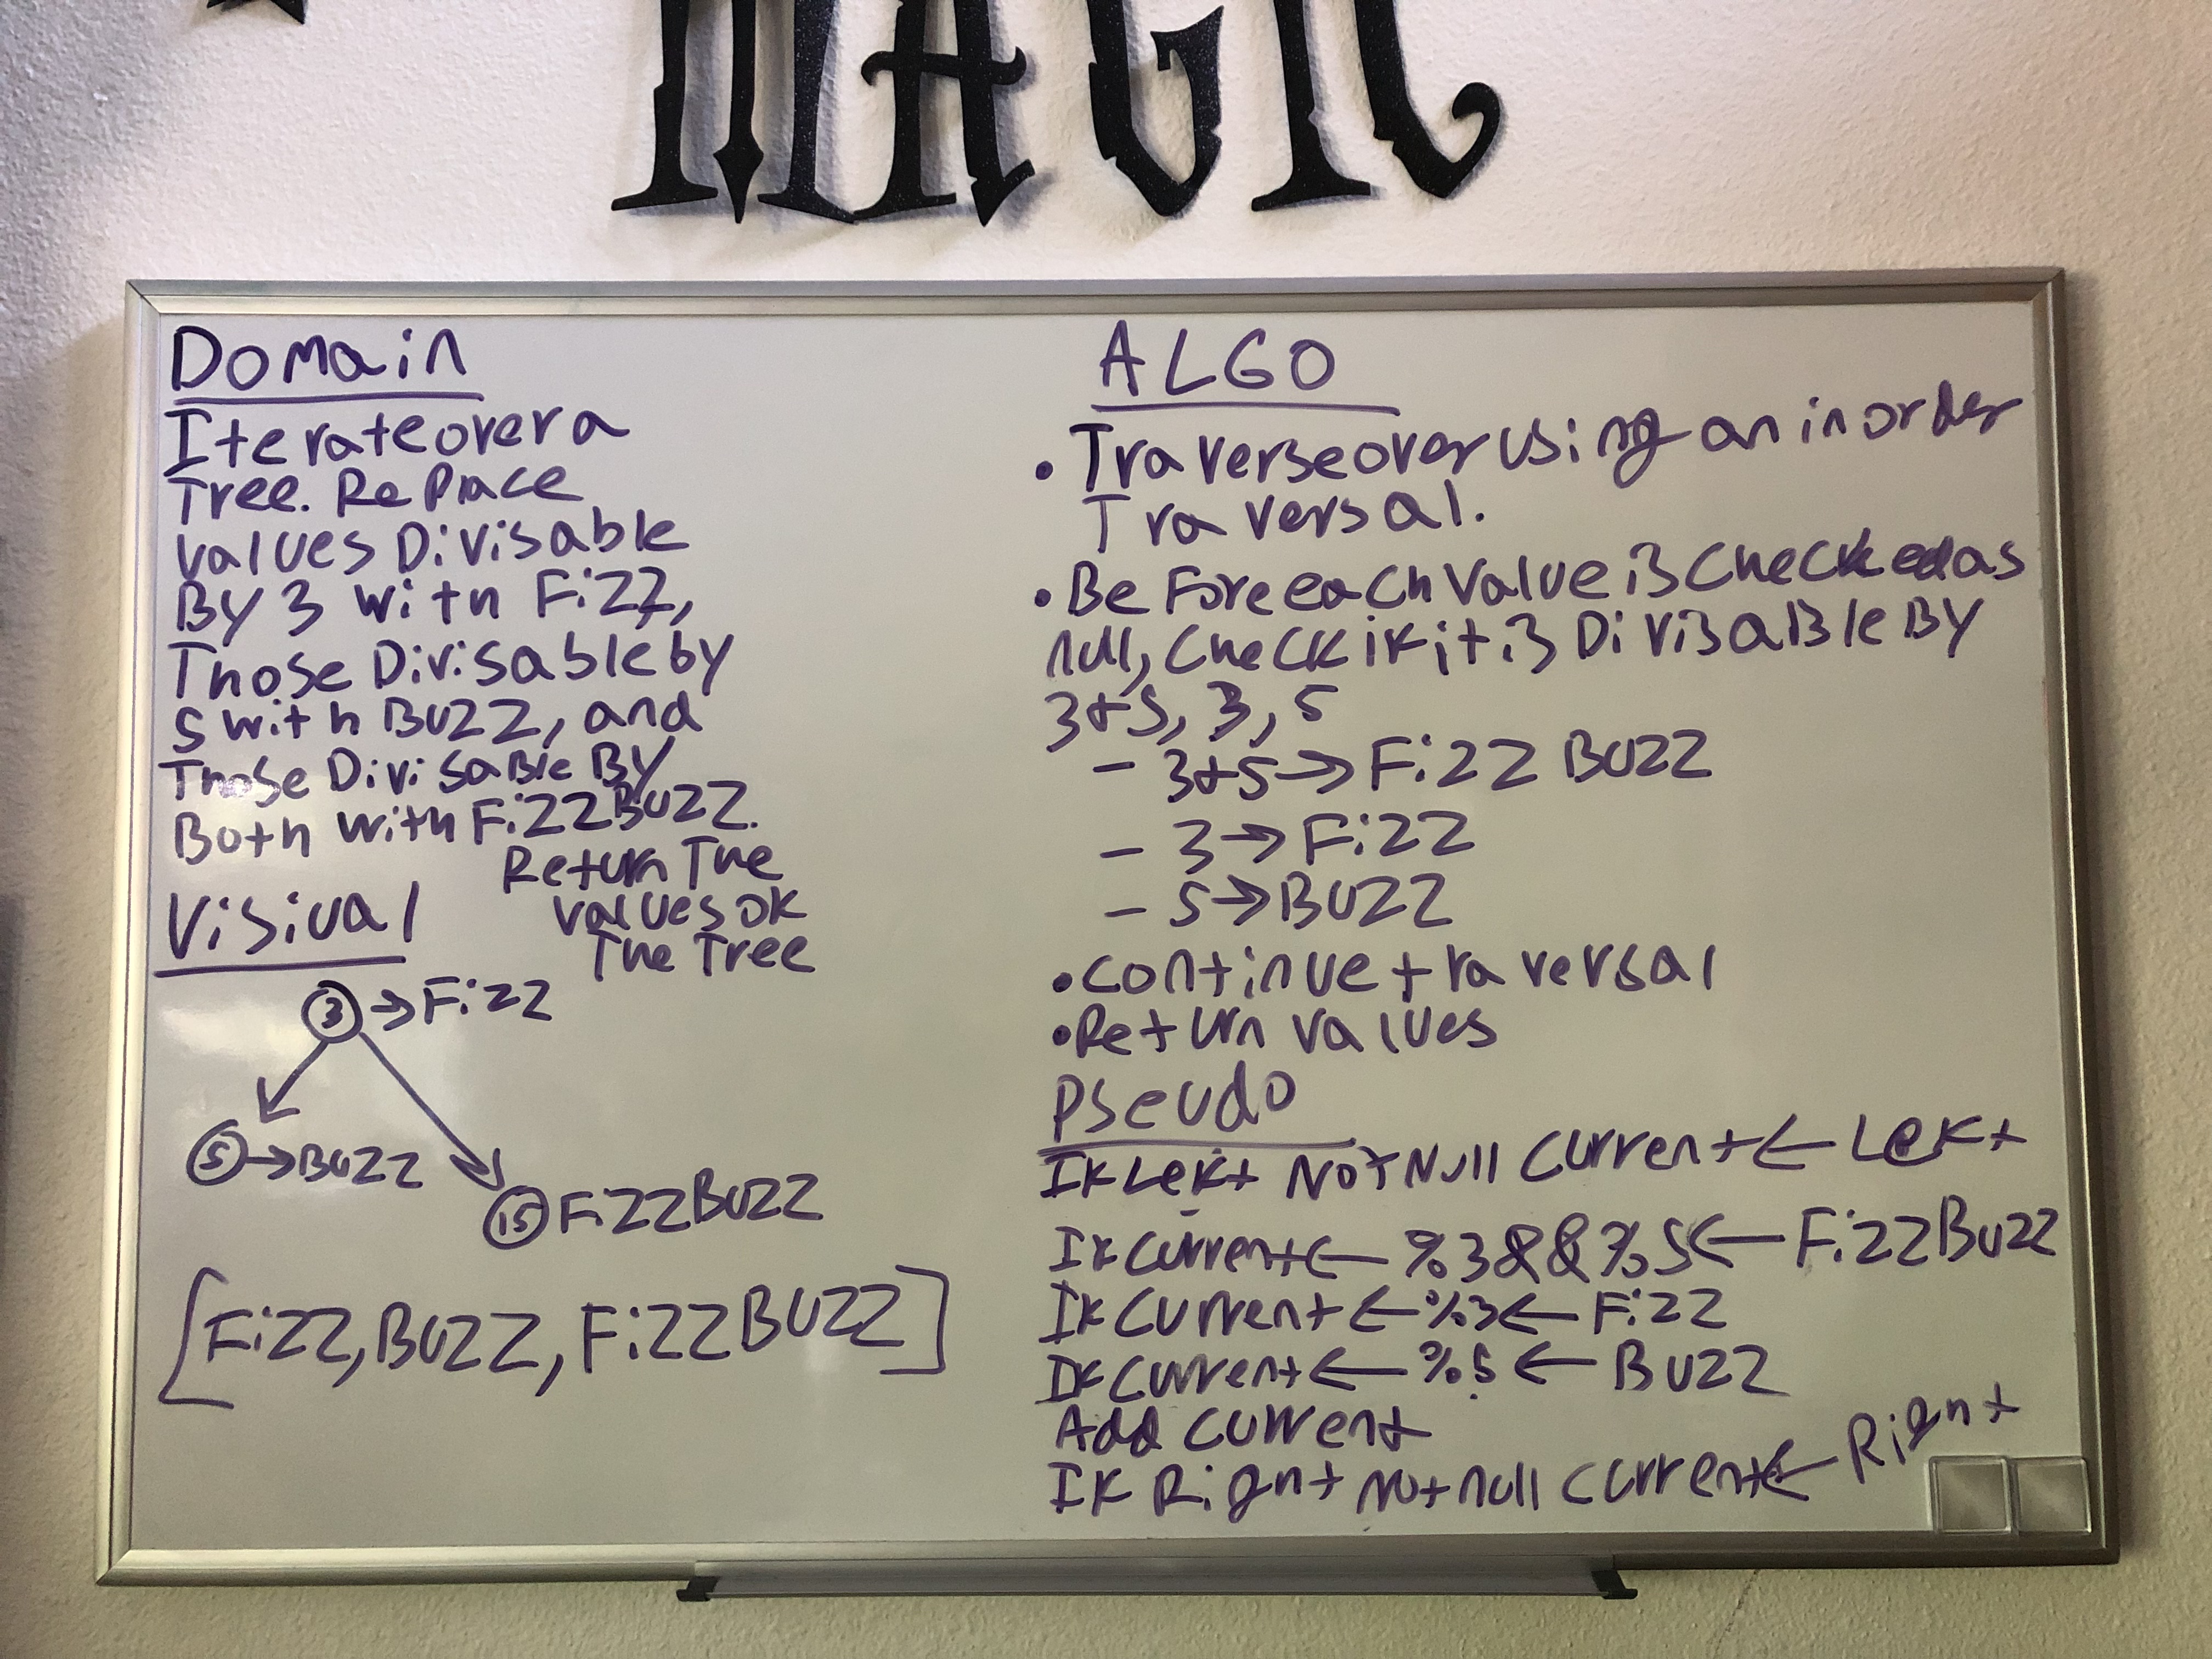 MAGIC
Domain
Iterate over a
Tree. Replace
values Divisable
By 3 with Fizz,
Those Divisable by
5 with Buzz, and
Those Divisable By
Both with FizzBuzz.
Return The
values of
The Tree
Visiual
3 → Fizz
5 → Buzz
15 FizzBuzz
[Fizz, Buzz, FizzBuzz]
ALGO
• Traverse over using an inorder
Traversal.
• Before each value is checked as
null, check if it is Divisable By
3+5, 3, 5
- 3+5 → Fizz Buzz
- 3 → Fizz
- 5 → Buzz
• continue traversal
• Return values
Pseudo
If Left Not Null Current ← Left
If Current ← %3 && %5 ← FizzBuzz
If Current ← %3 ← Fizz
If Current ← %5 ← Buzz
Add current
If Right not null current ← Right